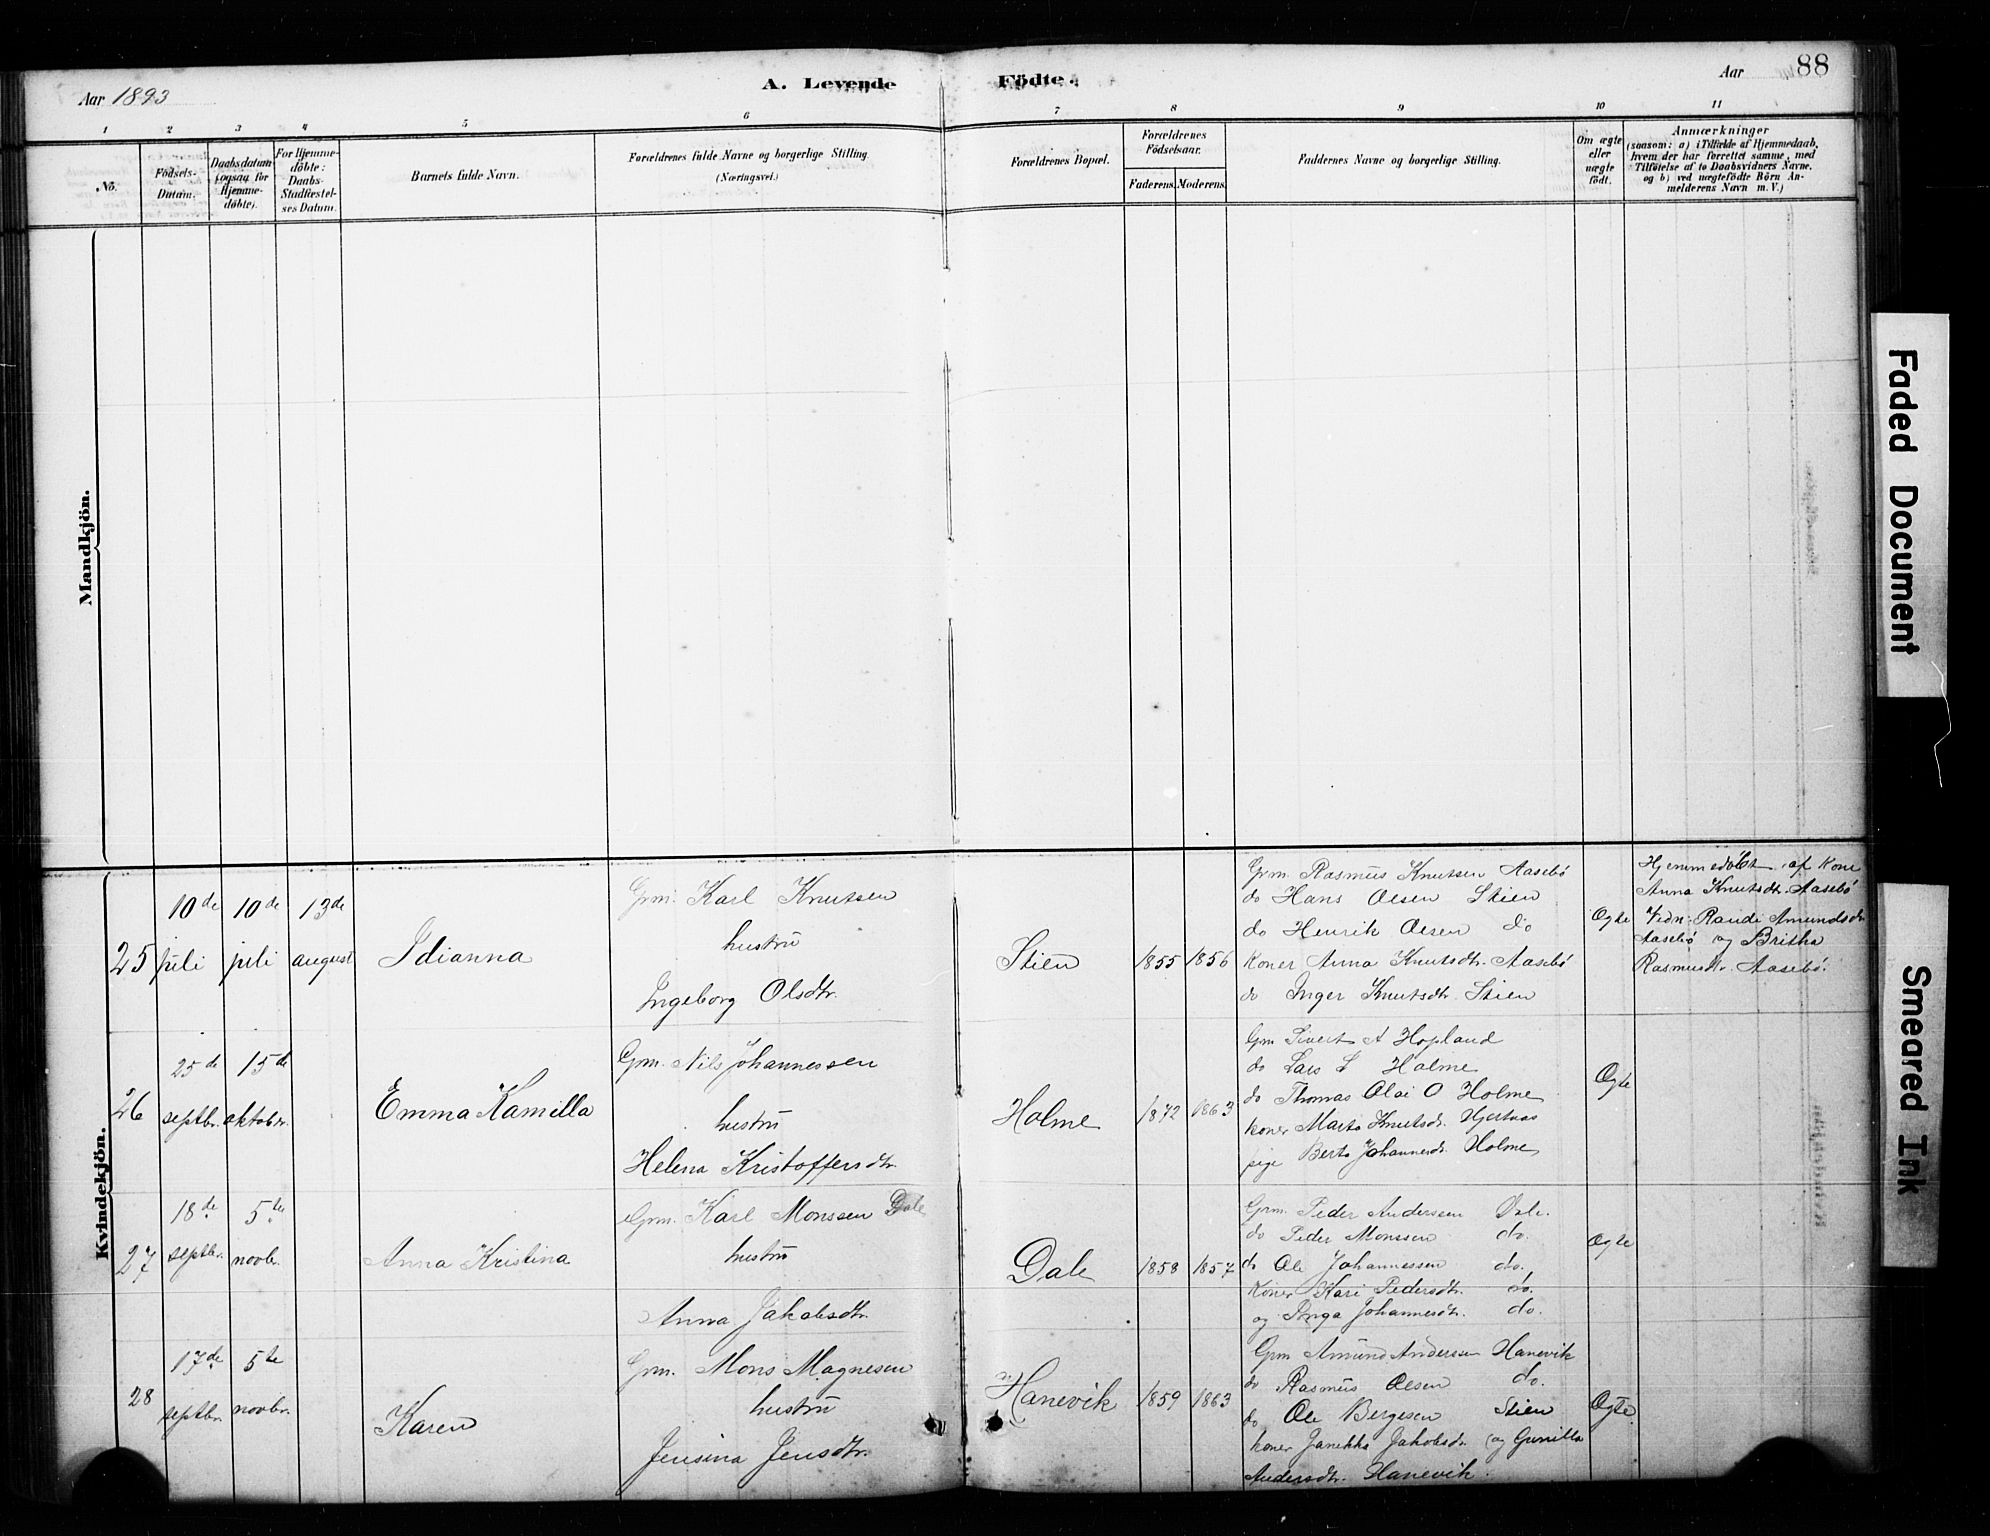 Aar 1893
A. Levende Födte.
Aar
88
1 2 3 4 5 6 7 8 9 10 11
No.
Födsels-
Datum.
Daabsdatum
(ogsaa for
Hjemme-
døbte).
For Hjemme-
döbte:
Daabs-
Stadfæstel-
ses Datum.
Barnets fulde Navn.
Forældrenes fulde Navne og borgerlige Stilling.
(Næringsvei.)
Forældrenes Bopæl.
Forældrenes
Födselsaar.
Faderens. Moderens.
Faddernes Navne og borgerlige Stilling.
Om ægte
eller
uægte
født.
Anmærkninger
(saasom: a) i Tilfælde af Hjemmedaab,
hvem der har forrettet samme, med
Tilföielse af to Daabsvidners Navne,
og b) ved uægtefödte Börn An-
melderens Navn m. V.)
Mandkjön.
Kvindekjön.
25
10de juli
10de juli
13de august
Idianna
Grm. Karl Knutsen
hustru
Ingeborg Olsdtr.
Stien
1855 1856
Grm. Rasmus Knutsen Aasebö
do Hans Olsen Stien
do Henrik Olsen do
Koner Anna Knutsdtr. Aasebö
do Inger Knutsdtr. Stien
Ogte
Hjemmedöbt af Kone
Anna Knutsdtr. Aasebö
Vidn: Randi Amundsdtr
Aasebö og Britha
Rasmusdtr. Aasebö.
26
25de septbr.
15de oktobr.
Emma Kamilla
Grm. Nils Johannessen
hustru
Helena Kristoffersdtr.
Holme
1872 1863
Grm Sivert A Hopland
do Lars L Holme
do Thomas Olai O Holme
koner Marta Knutsdr. Hjertnas
pige Berta Johannesdr. Holme
Ogte
27
18de septbr.
5te novbr.
Anna Kristina
Grm. Karl Monssen Dale
hustru
Anna Jakobsdtr.
Dale
1858 1857
Grm. Peder Andersen Dale.
do Peder Monssen do.
do Ole Johannessen do.
Koner Kari Pedersdtr. do.
og Inga Johannesdtr. do.
Ogte
28
17de septbr.
5te novbr.
Karen
Grm. Mons Magnesen
hustru
Jensina Jensdtr.
Hanevik
1859 1863
Grm Amund Andersen Hanevik
do Rasmus Olsen do.
do Ole Bergesen Stien
koner Janikka Jakobsdr. og Gunilla
Andersdtr. Hanevik.
Ogte.
Faded Document
Smeared Ink